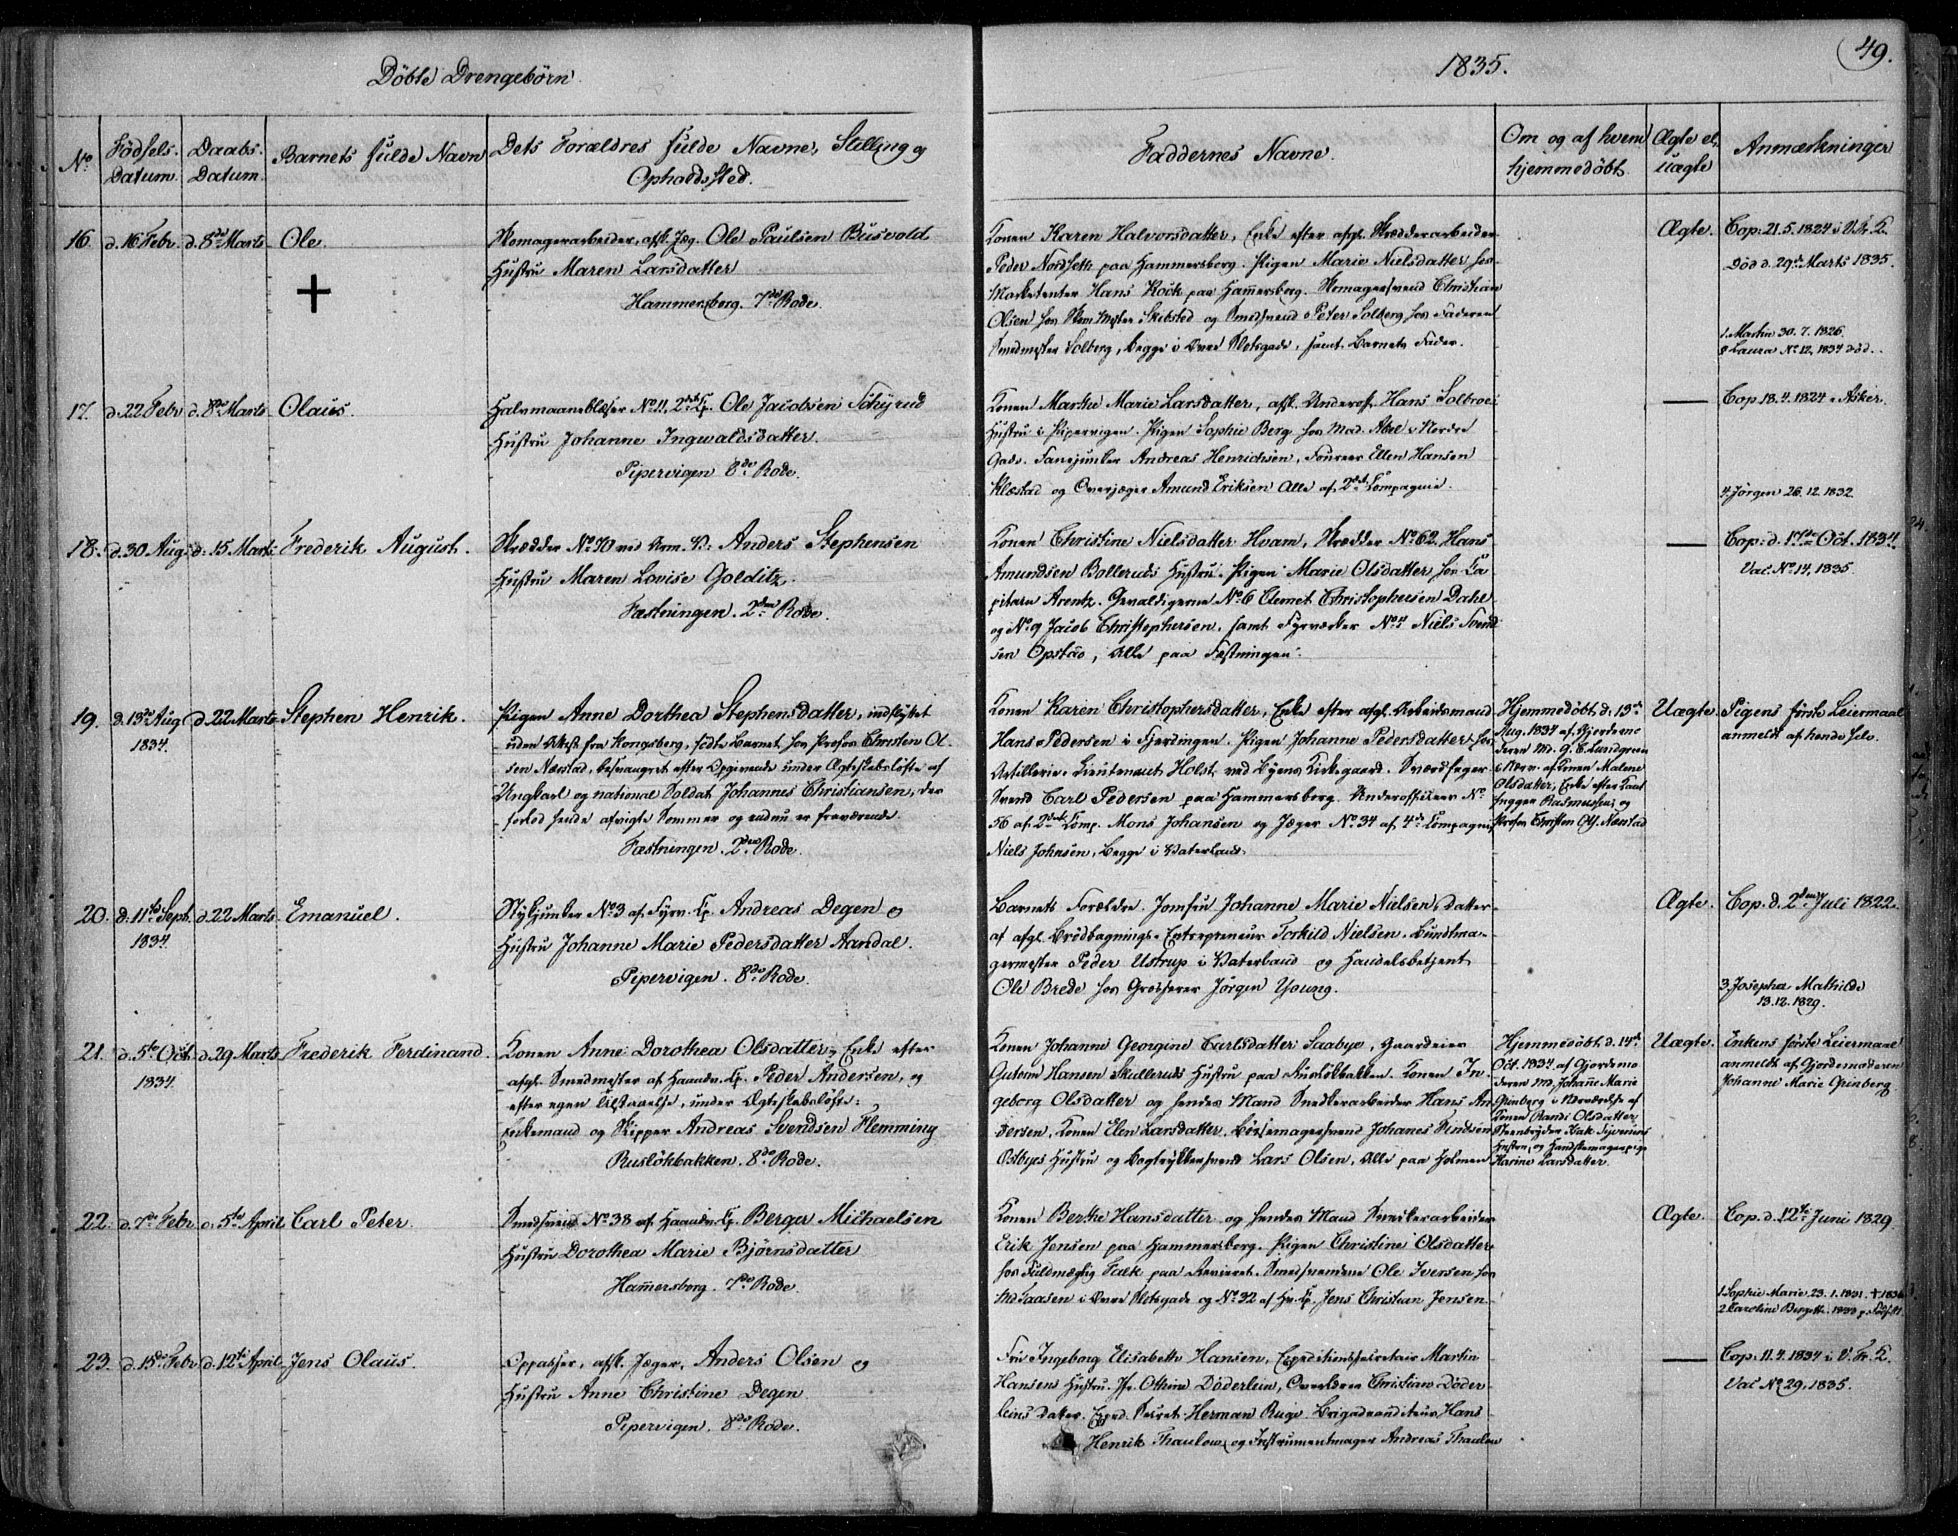 49.
Döbte Drengebörn
1835.
No
Födsels-Datum.
Daabs-Datum.
Barnets fulde Navn
Dets Forældres fulde Navne, Stilling og Opholdssted.
Faddernes Navne.
Om og af hvem hjemmedöbt.
Ægte el. uægte
Anmærkninger
16. d. 16 Febr. d. 8de Marts Ole.
Skomagerarbeider, afsk. Jæg. Ole Paulsen Busvold
Hustru Maren Larsdatter
Hammersborg. 7de Rode.
Konen Karen Halvorsdatter, Enke efter afgl. Skrædderarbeider
Peder Nordseth paa Hammersborg. Pigen Marie Nielsdatter hos
Marketenter Hans Kock paa Hammersborg. Skomagersvend Christian
Olsen hos Skom. Mester Skibsted og Smedsvend Peter Solberg hos Faderen
Smedmester Solberg, begge i Övre Slotsgade, samt Barnets Fader.
Ægte.
Cop: 21.5.1824 i V. Fr. K.
Död d. 29de Marts 1835.
1. Martin 30.7.1826.
Laura No 12, 1834 död.
17. d. 22 Febr. d. 8de Marts Olaus.
Halvmaaneblæser No 11, 2det Cp. Ole Jacobsen Schyrud
Hustru Johanne Ingwaldsdatter.
Pipervigen 8de Rode.
Konen Marthe Marie Larsdatter, afsk. Underof. Hans Solbroe
Hustru i Pipervigen. Pigen Sophie Berg hos Mad. Abel i Nordre
Gade. Fanejunker Andreas Henrichsen, Foureer Ellen Hansen
Klæstad og Overjæger Amund Eriksen Alle af 2det Compagnie.
—
Cop 18.4.1824 i Asker.
4. Jörgen 26.12.1832
18. d. 30 Aug. d. 15 Marts Frederik August.
Skrædder No 90 ved Arm. D: Anders Stephensen
Hustru Maren Lovise Golditz.
Fæstningen. 2den Rode.
Konen Christine Nielsdatter Hvam, Skrædder No 62 Hans
Amundsen Bolleruds Hustru. Pigen Marie Olsdatter hos Ca-
pitain Arentz. Gevaldigerne No 6 Clemet Christophersen Dahl
og No 9 Jacob Christophersen, samt Fyrværker No 4 Niels Svend
sen Opstad, Alle paa Fæstningen.
—
Cop: d. 17de Oct. 1834.
Vac. No 14, 1835.
19. d. 13de Aug d. 22 Marts Stephen Henrik.
1834.
Pigen Anne Dorthea Stephensdatter, indflyttet
uden Attest fra Kongsberg, födte Barnet hos Profos Christen Ol-
sen Næstad, besvangret efter Opgivende under Ægteskabslöfte af
Ungkarl og national Soldat Johannes Christiansen, der
forlod hende afvigte Sommer og endnu er fraværende.
Fæstningen. 2den Rode.
Konen Karen Christophersdatter, Enke efter afgl. Arbeidsmand
Hans Pedersen i Fjerdingen. Pigen Johanne Pedersdatter hos
Artillerie-Lieutenant Holst ved Byens Kirkegaard. Sværdfeger
Svend Carl Pedersen paa Hammersborg. Underofficeer No
56 af 2det Comp. Mons Johansen og Jæger No 34 af 4de Compagnie
Niels Johnsen, begge i Vaterland.
Hjemmedöbt d. 13de
Aug. 1834 af Gjordemo
deren Md. G. C. Lundgreen
i Nærv. af Konen Malene
Olsdatter, Enke efter
Rasmussen, og
Profos Christen Ols. Næstad
Uægte.
Pigens förste Leiermaal
anmeldt af hende selv.
20. d. 11te Sept. d. 22 Marts Emanuel.
1834.
Stykjunker No 3 af Fyrv. Cp. Andreas Degen og
Hustru Johanne Marie Pedersdatter Aandal.
Pipervigen. 8de Rode.
Barnets Forældre. Jomfru Johanne Marie Nielsen Datter
af afgl. Brödbagnings-Entrepreneur Torkild Nielsen. Bundtma-
germester Peder Ustrup i Vaterland og Handelsbetjent
Ole Brede hos Grosserer Jörgen Young.
Ægte.
Cop. d. 2den Juli 1822.
3. Josepha Mathilde
13.12.1829.
21. d. 5te Oct. d. 29 Marts Frederik Ferdinand.
1834.
Konen Anne Dorothea Olsdatter, Enke efter
afgl. Smedmester af Haandv. Cp. Peder Andersen, og
efter egen Tilstaaelse, under Ægteskabslöfte:
Enkemand og Skipper Andreas Svendsen Flemming
Ruslökbakken. 8de Rode.
Konen Johanne Georgine Carlsdatter Saabye, Gaardeier
Gutorm Hansen Skulleruds Hustru paa Ruslökbakken. Konen In-
geborg Olsdatter og hendes Mand Snedkerarbeider Hans An
dersen, Konen Elen Larsdatter, Bössemagersvend Johanes Knudsen
Östbyes Hustru og Bogtrykkersvend Lars Olsen, Alle paa Holmen
Hjemmedöbt. d. 14de
Oct. 1834 af Gjordemo
deren Md. Johanne Marie
Grinberg i Nærværelse af
Konen Randi Olsdatter
Steenbryder Isak Syversens
Hustru, og Handskemagerpige
Karine Larsdatter.
Uægte.
Enkens förste Leiermaal
anmeldt af Gjordemoderen
Johanne Marie Grinberg
22. d. 7de Febr. d. 5te April Carl Peter.
Smedsvend No 38 af Haandv. Cp. Berger Michaelsen
Hustru Dorothea Marie Björnsdatter
Hammersborg. 7de Rode.
Konen Berthe Hansdatter og hendes Mand Snedkerarbeider
Erik Jensen paa Hammersborg. Pigen Christine Olsdatter
hos Fuldmægtig Falk paa Revieret. Smedsvendene Ole Iversen hos
Md Faasen i Övre Slotsgade og No 32 af Hv. Cp. Jens Christian Jensen.
Ægte.
Cop. d. 12te Juni 1829
1. Sophie Marie 23.1.1831.
2. Caroline Birgitte 1833
23. d. 15de Febr. d. 12te April Jens Olaus.
Oppasser, afsk. Jæger, Anders Olsen og
Hustru Anne Christine Degen
Pipervigen. 8de Rode.
Fru Ingeborg Elisabeth Hansen, Expeditionssecretair Martin
Hansens Hustru. Jfr. Othine Döderlein, Overlærer Christian Döder
leins Datter. Exped. Secret. Herman Ruge. Brigadeauditeur Hans
Henrik Thaulow, og Instrumentmager Andreas Thaulow
—
Cop. 11.4.1834 i V. Fr. K.
Vac No 29. 1835.